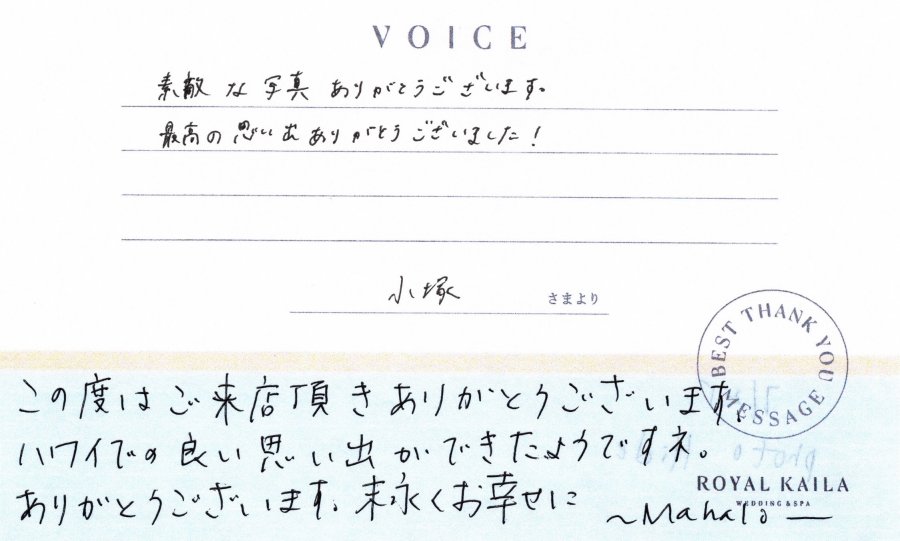 VOICE
素敵な写真ありがとうございます。
最高の思い出ありがとうございました!
小塚 さまより
BEST THANK YOU MESSAGE
この度はご来店頂きありがとうございます。
ハワイでの良い思い出ができたようですネ。
ROYAL KAILA
WEDDING & SPA
ありがとうございます。末永くお幸せに
~Mahalo―